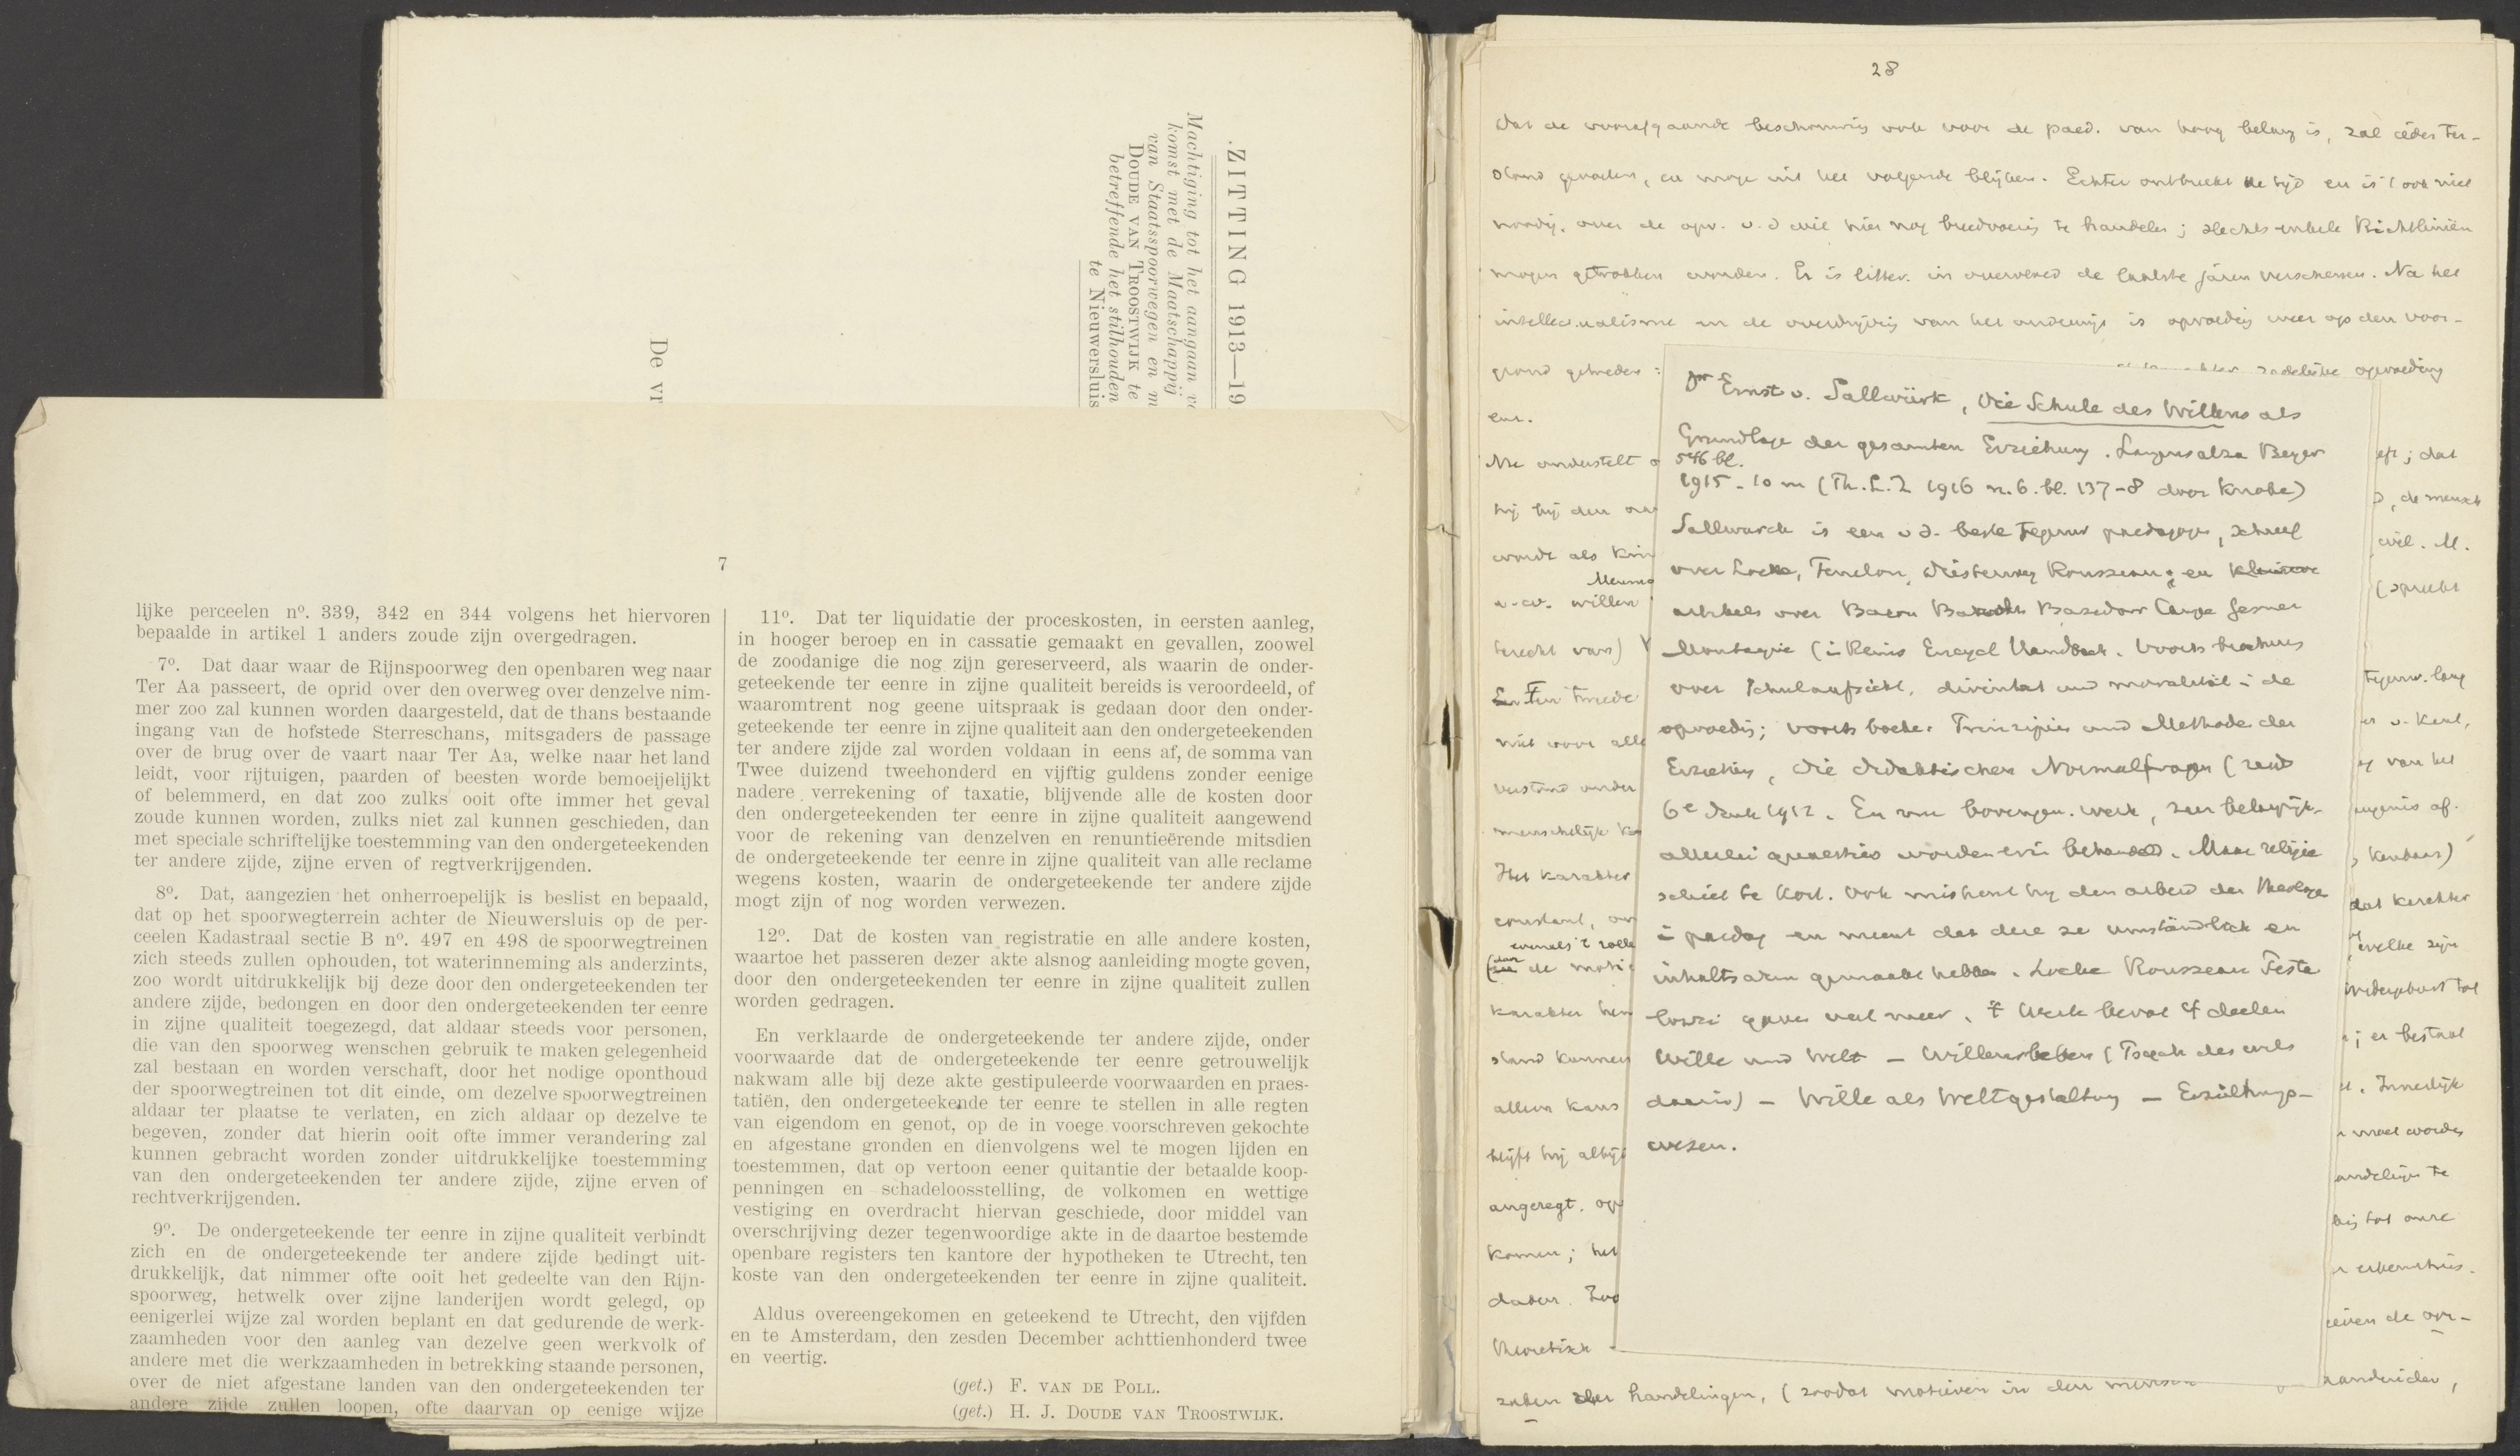 ZITTING 1913—19
Machtiging tot het aangaan v
komst met de Maatschappij
van Staatsspoorwegen en m
DOUDE VAN TROOSTWIJK te
betreffende het stilhouden
te Nieuwersluis
De vr
7
lijke perceelen nº. 339, 342 en 344 volgens het hiervoren
bepaalde in artikel 1 anders zoude zijn overgedragen.
7º. Dat daar waar de Rijnspoorweg den openbaren weg naar
Ter Aa passeert, de oprid over den overweg over denzelve nim-
mer zoo zal kunnen worden daargesteld, dat de thans bestaande
ingang van de hofstede Sterreschans, mitsgaders de passage
over de brug over de vaart naar Ter Aa, welke naar het land
leidt, voor rijtuigen, paarden of beesten worde bemoeijelijkt
of belemmerd, en dat zoo zulks ooit ofte immer het geval
zoude kunnen worden, zulks niet zal kunnen geschieden, dan
met speciale schriftelijke toestemming van den ondergeteekenden
ter andere zijde, zijne erven of regtverkrijgenden.
8º. Dat, aangezien het onherroepelijk is beslist en bepaald,
dat op het spoorwegterrein achter de Nieuwersluis op de per-
ceelen Kadastraal sectie B nº. 497 en 498 de spoorwegtreinen
zich steeds zullen ophouden, tot waterinneming als anderzints,
zoo wordt uitdrukkelijk bij deze door den ondergeteekenden ter
andere zijde, bedongen en door den ondergeteekenden ter eenre
in zijne qualiteit toegezegd, dat aldaar steeds voor personen,
die van den spoorweg wenschen gebruik te maken gelegenheid
zal bestaan en worden verschaft, door het nodige oponthoud
der spoorwegtreinen tot dit einde, om dezelve spoorwegtreinen
aldaar ter plaatse te verlaten, en zich aldaar op dezelve te
begeven, zonder dat hierin ooit ofte immer verandering zal
kunnen gebracht worden zonder uitdrukkelijke toestemming
van den ondergeteekenden ter andere zijde, zijne erven of
rechtverkrijgenden.
9º. De ondergeteekende ter eenre in zijne qualiteit verbindt
zich en de ondergeteekende ter andere zijde bedingt uit-
drukkelijk, dat nimmer ofte ooit het gedeelte van den Rijn-
spoorweg, hetwelk over zijne landerijen wordt gelegd, op
eenigerlei wijze zal worden beplant en dat gedurende de werk-
zaamheden voor den aanleg van dezelve geen werkvolk of
andere met die werkzaamheden in betrekking staande personen,
over de niet afgestane landen van den ondergeteekenden ter
andere zijde zullen loopen, ofte daarvan op eenige wijze
11º. Dat ter liquidatie der proceskosten, in eersten aanleg,
in hooger beroep en in cassatie gemaakt en gevallen, zoowel
de zoodanige die nog zijn gereserveerd, als waarin de onder-
geteekende ter eenre in zijne qualiteit bereids is veroordeeld, of
waaromtrent nog geene uitspraak is gedaan door den onder-
geteekende ter eenre in zijne qualiteit aan den ondergeteekenden
ter andere zijde zal worden voldaan in eens af, de somma van
Twee duizend tweehonderd en vijftig guldens zonder eenige
nadere verrekening of taxatie, blijvende alle de kosten door
den ondergeteekenden ter eenre in zijne qualiteit aangewend
voor de rekening van denzelven en renuntieërende mitsdien
de ondergeteekende ter eenre in zijne qualiteit van alle reclame
wegens kosten, waarin de ondergeteekende ter andere zijde
mogt zijn of nog worden verwezen.
12º. Dat de kosten van registratie en alle andere kosten,
waartoe het passeren dezer akte alsnog aanleiding mogte geven,
door den ondergeteekenden ter eenre in zijne qualiteit zullen
worden gedragen.
En verklaarde de ondergeteekende ter andere zijde, onder
voorwaarde dat de ondergeteekende ter eenre getrouwelijk
nakwam alle bij deze akte gestipuleerde voorwaarden en praes-
tatiën, den ondergeteekende ter eenre te stellen in alle regten
van eigendom en genot, op de in voege voorschreven gekochte
en afgestane gronden en dienvolgens wel te mogen lijden en
toestemmen, dat op vertoon eener quitantie der betaalde koop-
penningen en schadeloosstelling, de volkomen en wettige
vestiging en overdracht hiervan geschiede, door middel van
overschrijving dezer tegenwoordige akte in de daartoe bestemde
openbare registers ten kantore der hypotheken te Utrecht, ten
koste van den ondergeteekenden ter eenre in zijne qualiteit.
Aldus overeengekomen en geteekend te Utrecht, den vijfden
en te Amsterdam, den zesden December achttienhonderd twee
en veertig.
(get.) F. VAN DE POLL.
(get.) H. J. DOUDE VAN TROOSTWIJK.
28
Dat de voorafgaande beschouwing ook voor de paed. van hoog belang is, zal ieder ter-
stond gevoelen, en moge uit het volgende blijken. Echter ontbreekt de tijd en is 't ook niet
noodig, over de opv. v. d wil hier nog breedvoerig te handelen; slechts enkele Richtliniën
mogen getrokken worden. Er is litter. in overvloed de laatste jaren verschenen. Na het
intellectualisme en de overdrijving van het onderwijs is opvoeding weer op den voor-
grond getreden: zedelijke opvoeding
enz.
Dr Ernst v. Sallwürk, Die Schule des Willens als
Grundlage der gesamten Erziehung. Langensalza Beyer
546 bl.
1915 - 10 m (Th. L. Z 1916 n. 6. bl. 137-8 door Knabe)
Sallwürck is een v d. beste tegenw paedagogen, schreef
over Locke, Fenelon, Diesterweg Rousseau; en kleinere
artikels over Bacon Basedow Gesner
Montaigne (in Reins Encycl Handbuch. Voorts brochures
over Schulaufsicht, divinitat und moralität in de
opvoedig; voorts boeke: Prinzipien und Methode der
Erziehung, Die didaktischen Normalfragen (reeds
6e druk 1912. En nu bovengen. werk, zeer belangrijk.
allerlei quaesties worden erin behandeld. Maar religie
schiet te kort. Ook miskent hij den arbeid der theologen
in paedag en meent dat deze ze umständlich en
inhaltsarm gemaakt hebben. Locke Rousseau Pesta
lozzi gaven veel meer. 't Werk bevat 4 deelen
Wille und Welt — Willensleben (Psych des wils
daarin) — Wille als Weltgestaltung — Erziehungs-
wesen.
karakter
stand kunnen
blijft hij altijd
angeregt. op
komen; het
theoretisch
handelingen, (zoodat motieven in den
; dat
, de mensch
wil. M.
tegenw. lang
v. Kant,
van het
dat karakter
welke zijn
; er bestaat
Innerlijk
moet worden